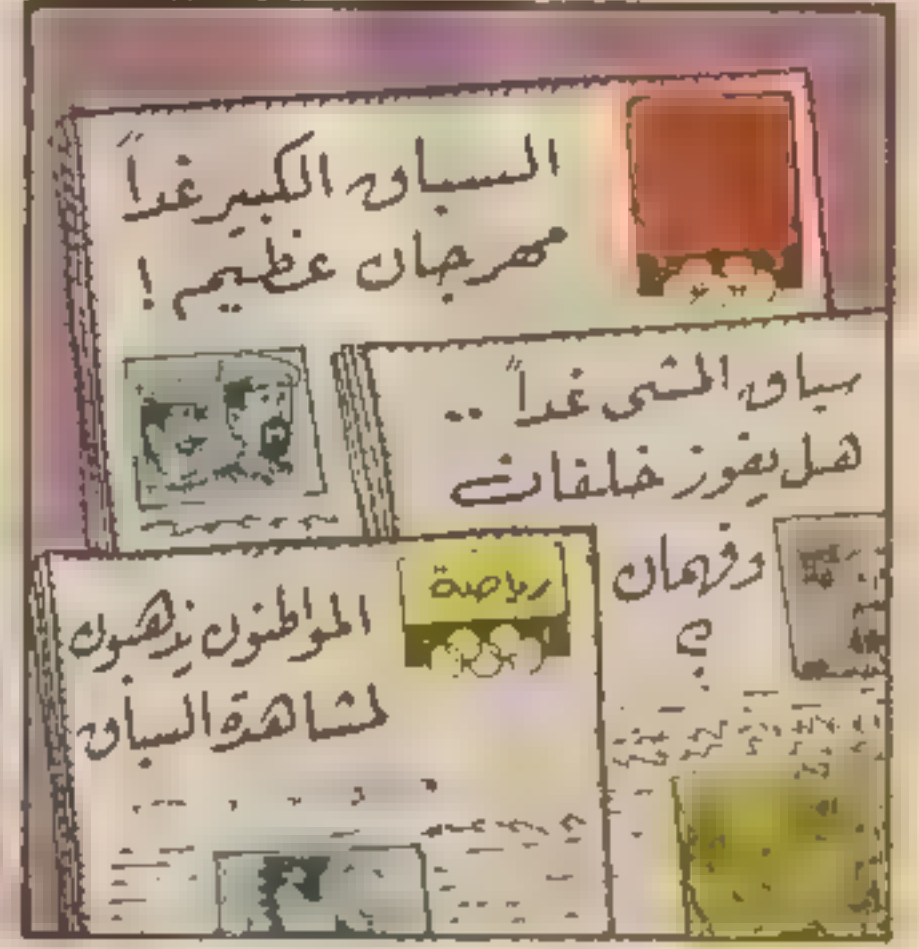 السباق الكبير غداً
مهرجان عظيم !
سباق المشى غداً ..
هل يفوز خلفان
وفهمان
؟
رياضة
المواطنون يذهبون
لمشاهدة السباق